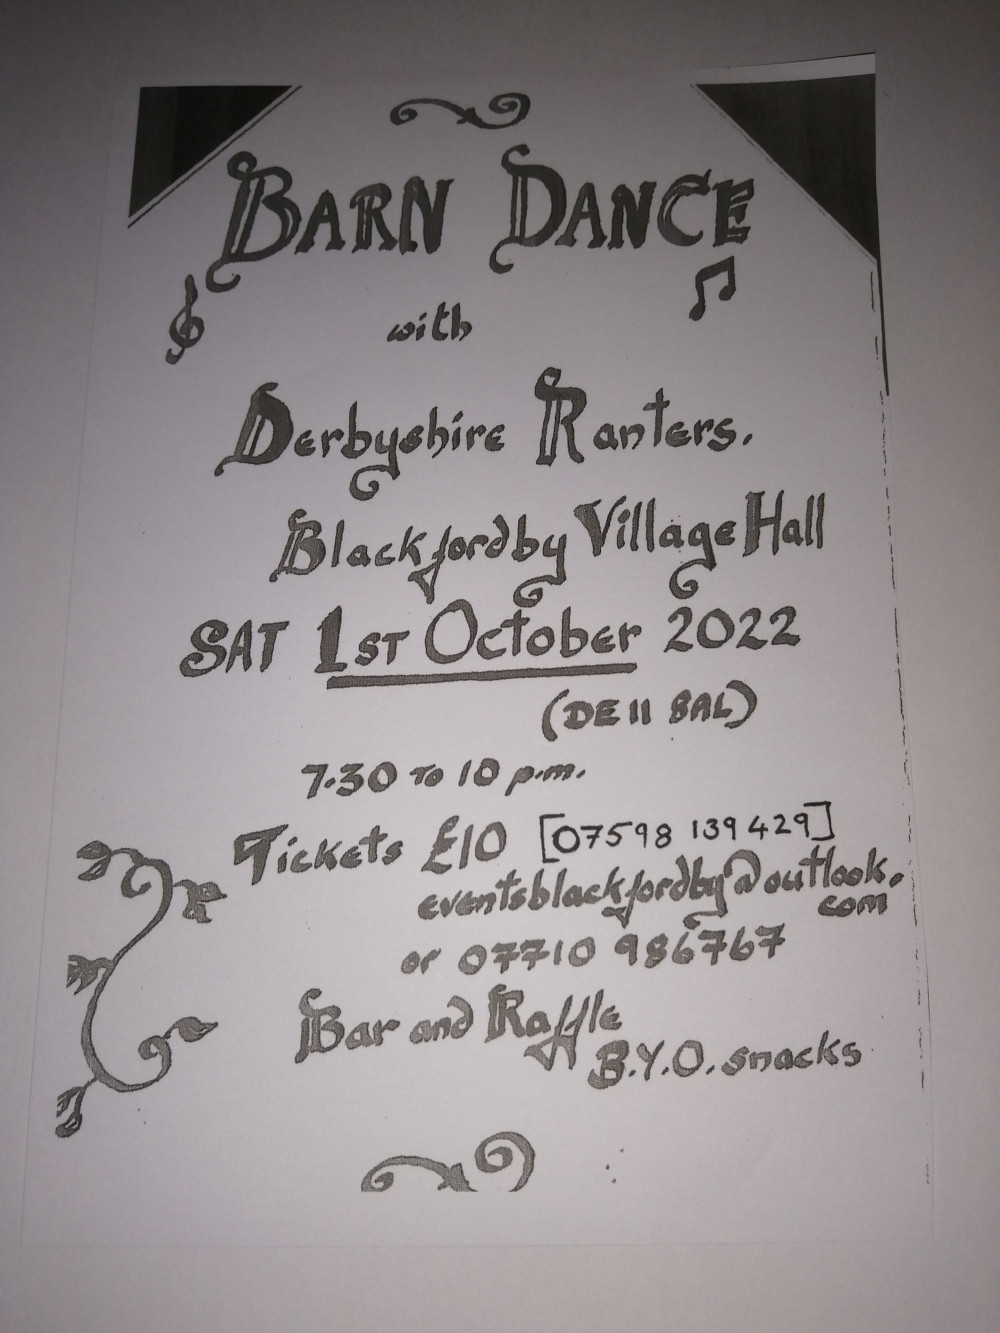 BARN DANCE
with
Derbyshire Ranters.
Blackfordby Village Hall
SAT 1ST October 2022
(DE11 8AL)
7.30 TO 10 p.m.
Tickets £10 [07598 139429]
eventsblackfordby@outlook.
com
or 07710 986767
Bar and Raffle
B.Y.O. snacks